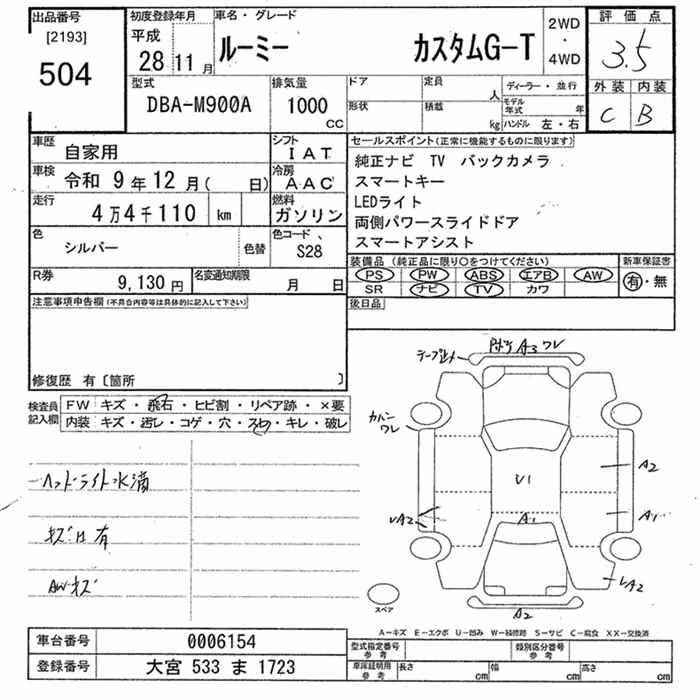 出品番号
[2193]
504
初度登録年月
平成
28 11 月
車名・グレード
ルーミー カスタムG-T
2WD
・
4WD
評価点
3.5
外装 内装
C B
型式
DBA-M900A
排気量
1000
CC
ドア
形状
定員
人
積載
kg
ディーラー・並行
モデル年式 年
ハンドル 左・右
車歴
自家用
シフト
IAT
車検
令和 9年12月( 日)
冷房
AAC
走行
4万4千110 km
燃料
ガソリン
色
シルバー
色替
色コード
S28
R券
9,130 円
名変通知期限
月 日
セールスポイント(正常に機能するものに限ります)
純正ナビ TV バックカメラ
スマートキー
LEDライト
両側パワースライドドア
スマートアシスト
装備品 (純正品に限り〇をつけてください)
PS PW ABS エアB AW
SR ナビ TV カワ
新車保証書
有・無
後日品
注意事項申告欄(不具合内容等は具体的に記入して下さい)
修復歴 有〔箇所 〕
検査員
記入欄
FW キズ・飛石・ヒビ割・リペア跡・×要
内装 キズ・汚レ・コゲ・穴・スレ・キレ・破レ
ヘッドライト水滴
キズ凹有
AWキズ
テープ止メ
A3 ワレ
カバー
ワレ
U1
A2
A1
A1
UA2
UA2
A2
スペア
A-キズ E-エクボ U-凹み W-補修跡 S-サビ C-腐食 XX-交換済
車台番号 0006154
登録番号 大宮 533 ま 1723
型式指定番号
参考
類別区分番号
参考
車庫証明用
参考
長さ cm
幅 cm
高さ cm